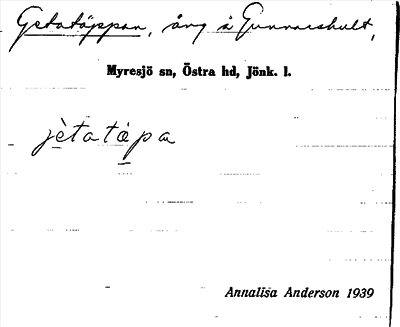 Getatäppan, äng å Gunnarshult,
Myresjö sn, Östra hd, Jönk. l.
jètatäpa
Annalisa Anderson 1939